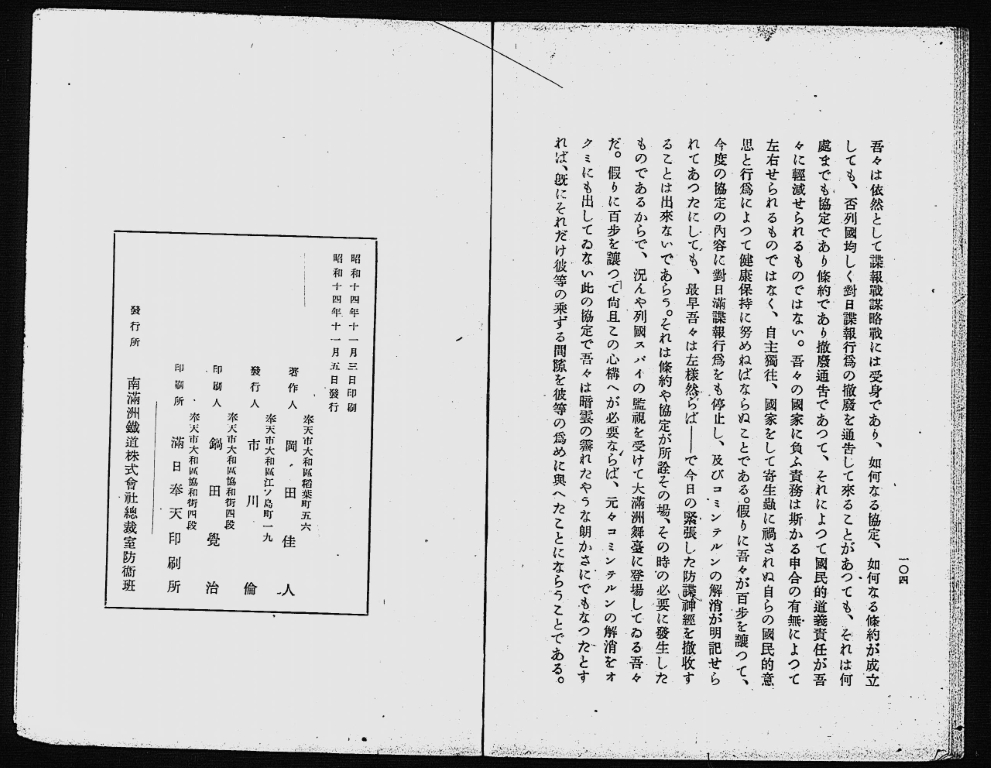 一〇四
吾々は依然として諜報戰謀略戰には受身であり、如何なる協定、如何なる條約が成立
しても、否列國均しく對日諜報行爲の撤廢を通告して來ることがあつても、それは何
處までも協定であり條約であり撤廢通告であつて、それによつて國民的道義責任が吾
々に輕減せられるものではない。吾々の國家に負ふ責務は斯かる申合の有無によつて
左右せられるものではなく、自主獨往、國家をして寄生蟲に禍されぬ自らの國民的意
思と行爲によつて健康保持に努めねばならぬことである。假りに吾々が百步を讓つて、
今度の協定の內容に對日滿諜報行爲をも停止し、及びコミンテルンの解消が明記せら
れてあつたにしても、最早吾々は左樣然らば――で今日の緊張した防諜神經を撤收す
ることは出來ないであらう。それは條約や協定が所詮その場、その時の必要に發生した
ものであるからで、況んや列國スパイの監視を受けて大滿洲舞臺に登場してゐる吾々
だ。假りに百步を讓つて尙且この心構へが必要ならば、元々コミンテルンの解消をオ
クミにも出してゐない此の協定で吾々は暗雲の霽れたやうな朗かさにでもなつたとす
れば、旣にそれだけ彼等の乘ずる間隙を彼等の爲めに與へたことにならうことである。
昭和十四年十一月三日印刷
昭和十四年十一月五日發行
奉天市大和區稻葉町五六
著作人 岡田佳人
奉天市大和區江ノ島町一九
發行人 市川倫
奉天市大和區協和街四段
印刷人 鍋田覺治
奉天市大和區協和街四段
印刷所 滿日奉天印刷所
發行所 南滿洲鐵道株式會社總裁室防衞班